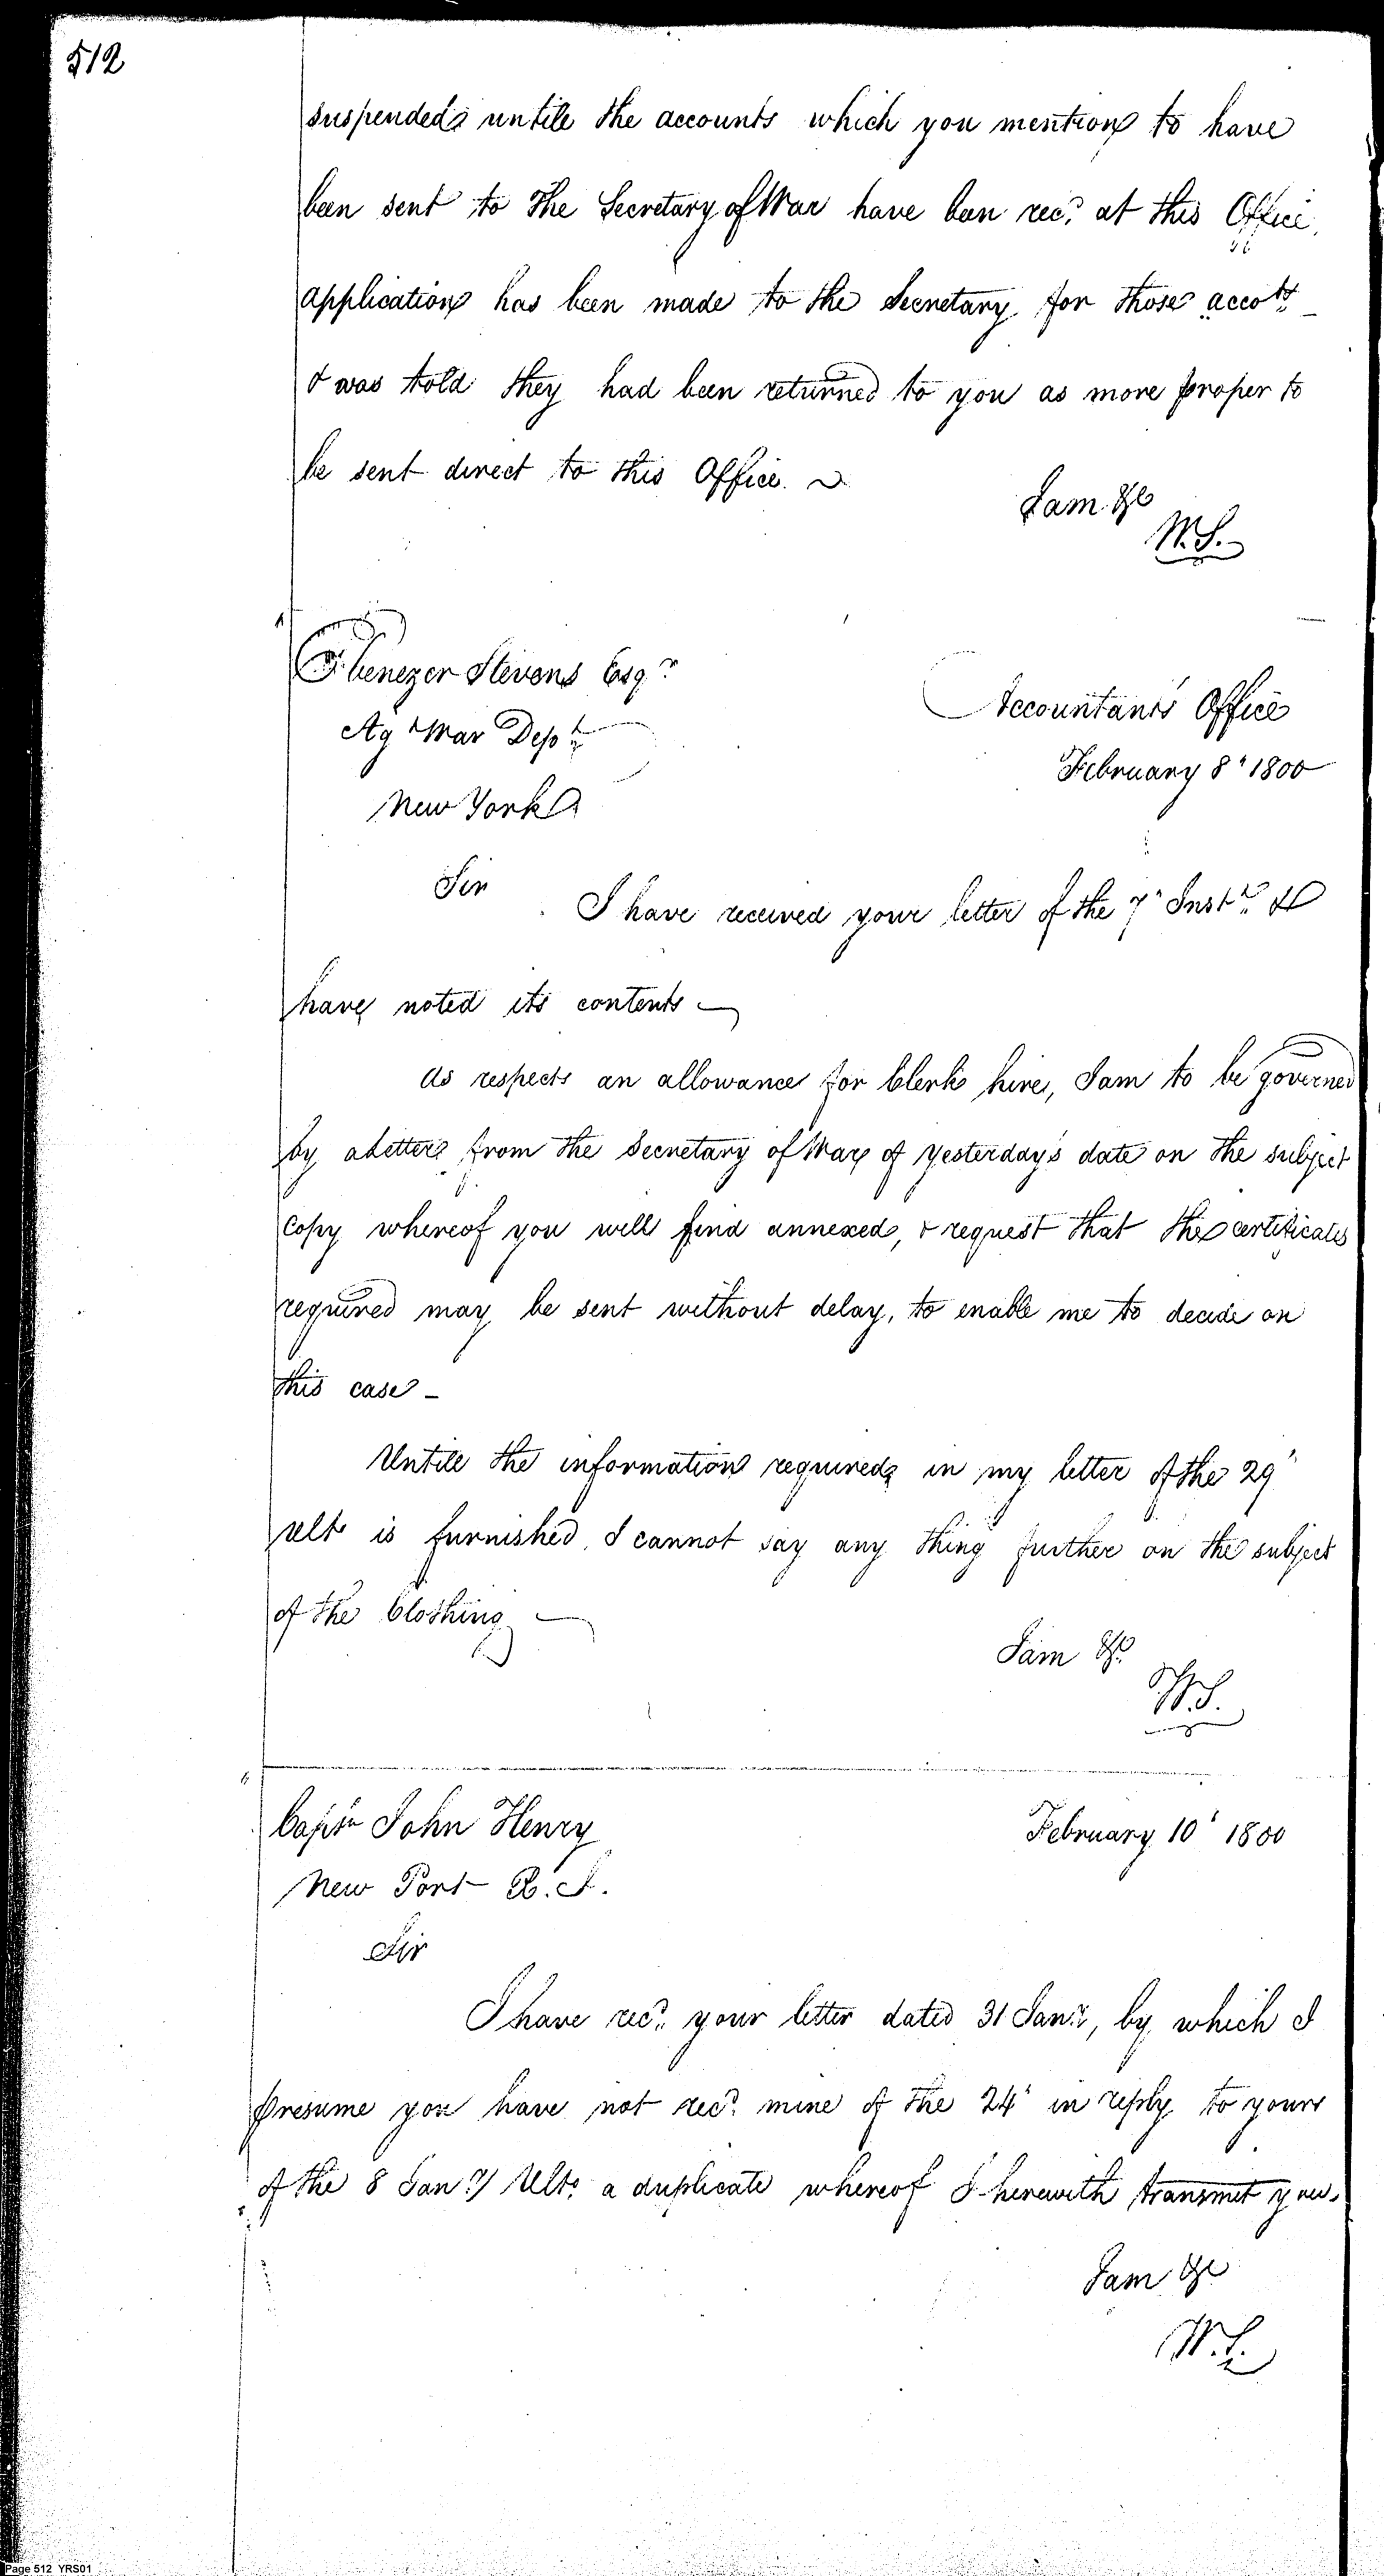 512
suspended untill the accounts which you mention to have
been sent to the Secretary of War have been recd. at this Office,
application has been made to the Secretary for those accots.
& was told they had been returned to you as more proper to
be sent direct to this Office.
I am &c
W.S.
Ebenezer Stevens Esqr.
Ag War Dept.
New York
Accountants Office
February 8' 1800
Sir
I have received your letter of the 7' Inst. &
have noted its contents
As respects an allowance for Clerk hire, I am to be governed
by a letter from the Secretary of War of yesterday's date on the subject
Copy whereof you will find annexed, & request that the certificates
required may be sent without delay, to enable me to decide on
this case -
Untill the information required in my letter of the 29'
ulto is furnished, I cannot say any thing further on the subject
of the Clothing
I am &c.
W.S.
Captn John Henry
New Port R. I.
February 10' 1800
Sir
I have recd. your letter dated 31 Jany., by which I
presume you have not recd. mine of the 24' in reply to yours
of the 8 Jany Ulto. a duplicate whereof I herewith transmit you.
I am &c
W.S.
Page 512 YRS01